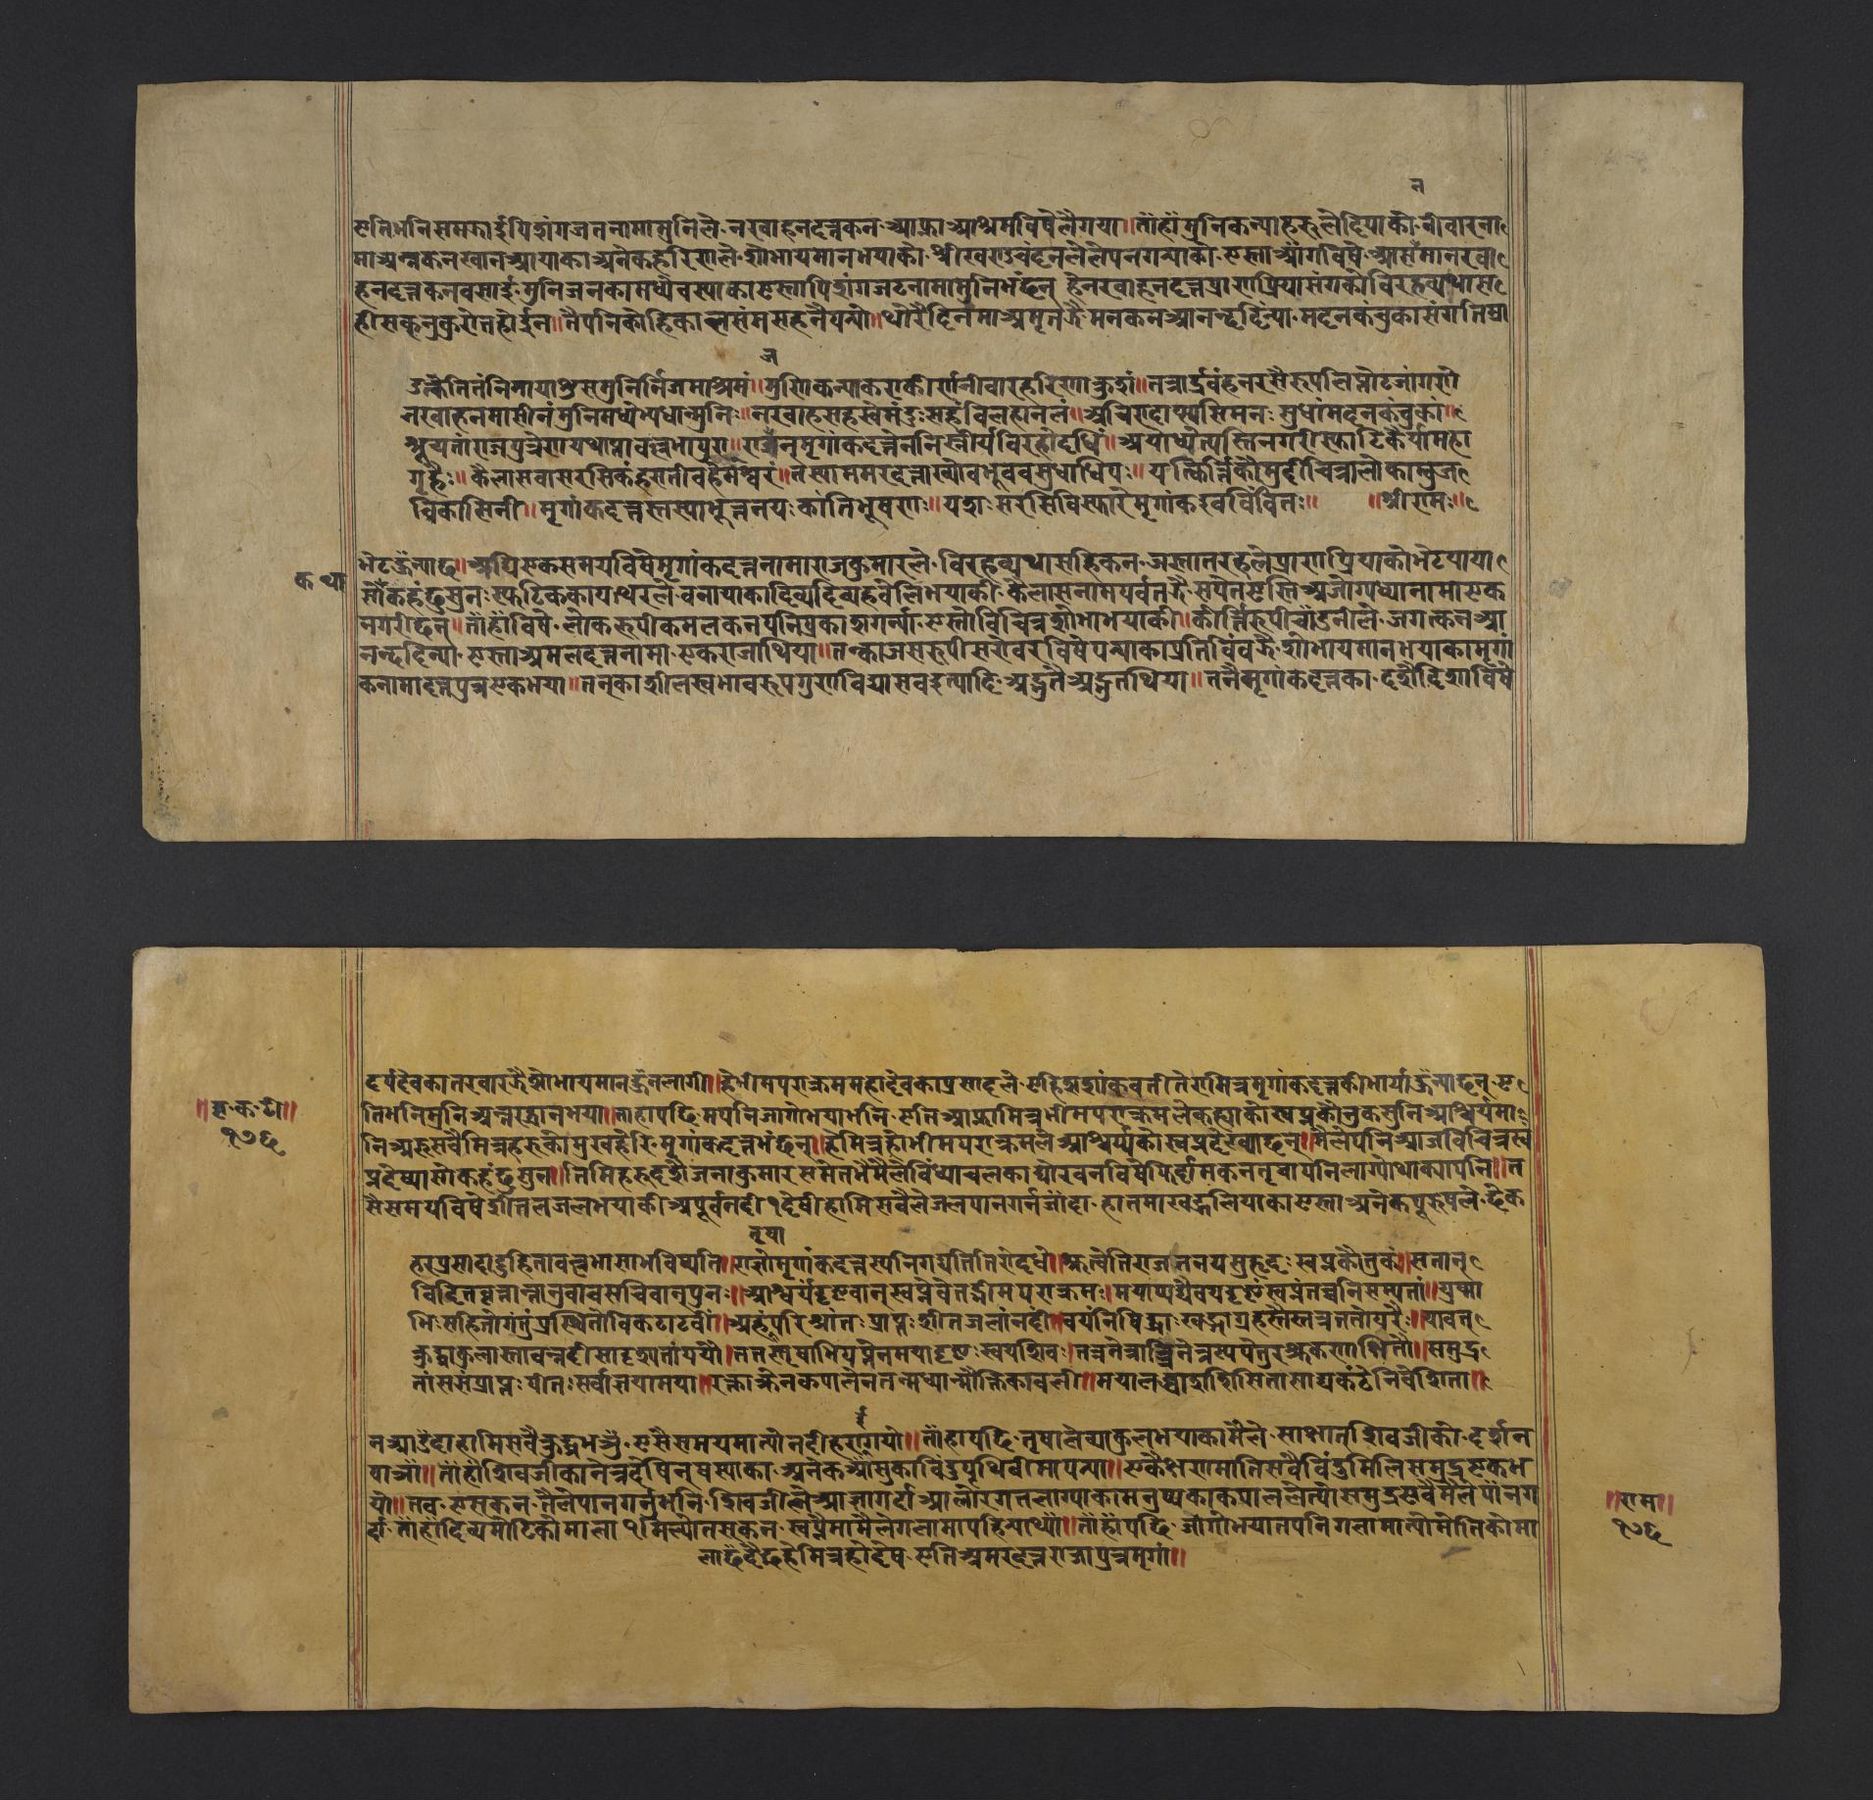 न
एति भनि समझाई पिशंगजटनामा मुनिले नरवाहनदत्तकन आफ्ना आश्रमविषे लैगया॥ ताँहाँ मुनिकन्याहरूले दियाको नीवारना
मा अन्नकन खान आयाका अनेक हरिणले शोभायमान भयाको श्रीखण्डचंदनले लेपन गर्‍याको एस्ता आँगविषे आसँमा नरवा
हनदत्तकन वसाई मुनिजनका मध्ये वस्याका एस्ता पिशंगजटनामा मुनि भंछन् हे नरवाहनदत्त प्राणप्रिया संगको विरहव्यथा स
ही सकनु कुरो त होईन॥ तैपनि कोहि काल संम सहनै पर्‍यो॥ थोरै दिनमा अमृत झैँ मनकन आनन्द दिंन्या मदनकंचुका संग ति
ज
उक्त्वेति तं निनायाशु स मुनिर्निजमाश्रमं॥ मुनिकन्याकराकीर्णनीवारहरिणाकुशं॥ तत्रार्द्रचंदनरसैरुपलिप्तोटजांगणे
नरवाहनमासीनं मुनिमध्येभ्यधान्मुनिः॥ नरवाह सहस्वेमं दुःसहं विरहानलं॥ अचिरादाप्स्यसि मनः सुधां मदनकंचुकां॥
श्रूयतां राजपुत्रेण यथा प्राप्ता वल्लभा पुरा॥ राज्ञन्मृगांकदत्तेन निस्तीर्य विरहोदधिं॥ अयोध्येत्यस्ति नगरी स्फाटिकैर्या महा
गृहैः॥ कैलासवासरसिकं हसतीव महेश्वरं॥ तस्यामसरदत्ताख्यो बभूव वसुधाधिपः॥ यत्कीर्त्तिकौमुदी चित्रा लोकाम्बुज
विकासिनी॥ मृगांकदत्तस्तस्याभूत्तनयः कांतिभूषणः॥ यशःसरसि विस्फारे मृगांक इव बिंबितः॥ ॥श्रीरामः॥
कथा
भेट हुँन्याछ॥ अघि एक समयविषे मृगांकदत्तनामा राजकुमारले विरहव्यथा सहिकन जस्ता तरहले प्राणप्रियाको भेट पाया
सो कहंछु सुन स्फटिकका पथरले वनायाका दिव्य दिव्य हवेलि भयाकी कैलासनाम पर्वत झैँ सपेत एस्ति अजोध्यानामा एक
नगरी छन्॥ ताँहाँविषे लोकरूपी कमलकन पनि प्रकाश गर्न्या एस्तो विचित्र शोभा भयाकी॥ कीर्त्तिरूपी चाँदुनीले जगत्कन आ
नन्द दिन्या एस्ता अमलदत्तनामा एक राजा थिया॥ तन्का जसरूपी सरोवरविषे पर्‍याका प्रतिविंव झैँ शोभायमान भयाका मृगां
कनामादत्त पुत्र एक भया॥ तनका शील स्वभाव रूप गुण विद्या सव इत्यादि अद्भुतै अद्भुत थिया॥ तनै मृगांकदत्तका दशै दिशाविषे
॥बृ॰क॰टी॥
१७६
दर्पदेवका तरवार झैँ शोभायमान हुँन लागी॥ हे भीमपराक्रम महादेवका प्रसादले एहि शशांकवती ते रामित्र मृगांकदत्तकी भार्या हुँन्याछन् ए
ति भनि मुनि अन्तर्द्धान भया॥ ताहापछि म पनि जागो भया भनि एति आफ्ना मित्र भीमपराक्रमले कह्याको स्वप्नकौतुक सुनि आश्चर्य मा
नि अरु सवै मित्रहरूको मुख हेरि मृगांकदत्त भंछन्॥ हे मित्र हो भीमपराक्रमले आश्चर्यको स्वप्न देख्याछन्॥ मैले पनि आज विचित्र स्व
प्न देष्या सो कहंछु सुन॥ तिमिहरू दशै जना कुमार समेत भै मैले विंध्याचलका घोर वनविषे फिर्दा मकन तृषा पनि लाग्यो थाक्या पनि॥ त
सै समयविषे शीतल जल भयाकी अपूर्व नदी १ देषी हामि सवैले जलपान गर्न जाँदा हातमा खड्ग लियाका एस्ता अनेक पुरूषले छेक
तृषा
हरप्रसादाद्दुहिता वल्लभा सा भविष्यति॥ राज्ञो मृगांकदत्तस्य निगद्येति तिरोदधे॥ श्रुत्वेति राजतनयः सुहृदः स्वप्नकौतुकं॥ स तान्
विदितवृत्तान्तानुवाच सचिवान्पुनः॥ आश्चर्यं दृष्टवान् स्वप्नेवेतद्भीमपराक्रमः॥ मयाप्यद्यैव यद्दृष्टं स्वप्नं तच्च निसम्यतां॥ युष्मा
भिः सहितो गंतुं प्रस्थितो विकटाटवीं॥ अहं परिश्रांतः प्राप्तः शीतजलां नदीं॥ वयं निषिद्धाः खड्गाग्रहस्तैस्तत्र ततो परैः॥ यावत्
क्रुद्धाकुलास्तावन्नदी सादृश्यतां ययौ॥ ततस्तृषाभियुक्तेन मया दृष्टः स्वयं शिवः॥ तन्नेत्राच्चित्रनेत्रस्य पेतुरश्रुकणाः क्षितौ॥ समुद्र
तां स संप्राप्तः पीतः सर्वाज्ञया मया॥ रक्ताक्तेन कपालेन तन्मध्यान्मौक्तिकावली॥ मया लब्धाशु शिसितासाद्य कंठे निवेशिता॥
न आउँदा हामि सवै क्रुद्ध भञुँ एसै समयमा त्यो नदी हराईगयो॥ ताँहापछि तृषाले व्याकुल भयाका मैले साक्षात् शिवजीको दर्शन
पाञाँ॥ ताँहाँ शिवजीका नेत्रदेषिन् षस्याका अनेक आँसुका विंदु पृथिवीमा पर्‍या॥ एकै क्षणमा ति सवै विंदु मिलि समुद्र एक भ
यो॥ तव एसकन तैले पान गर्नु भनि शिवजीले आज्ञा गर्दा आलो रगत लाग्याका मनुष्यका कपालले त्यो समुद्र सवै मैले पान ग
र्दा ताँहा दिव्य मोटिको माला १ मिल्यो तसकन स्वप्नैमा मैले गलामा पहिर्‍या थ्याँ॥ ताँहाँपछि जागो भया त पनि गलामा त्यो मोतिको मा
ला छँदैछ हे मित्र हो देष एति अमरदत्त राजापुत्र मृगां॥
॥राम॥
१७६